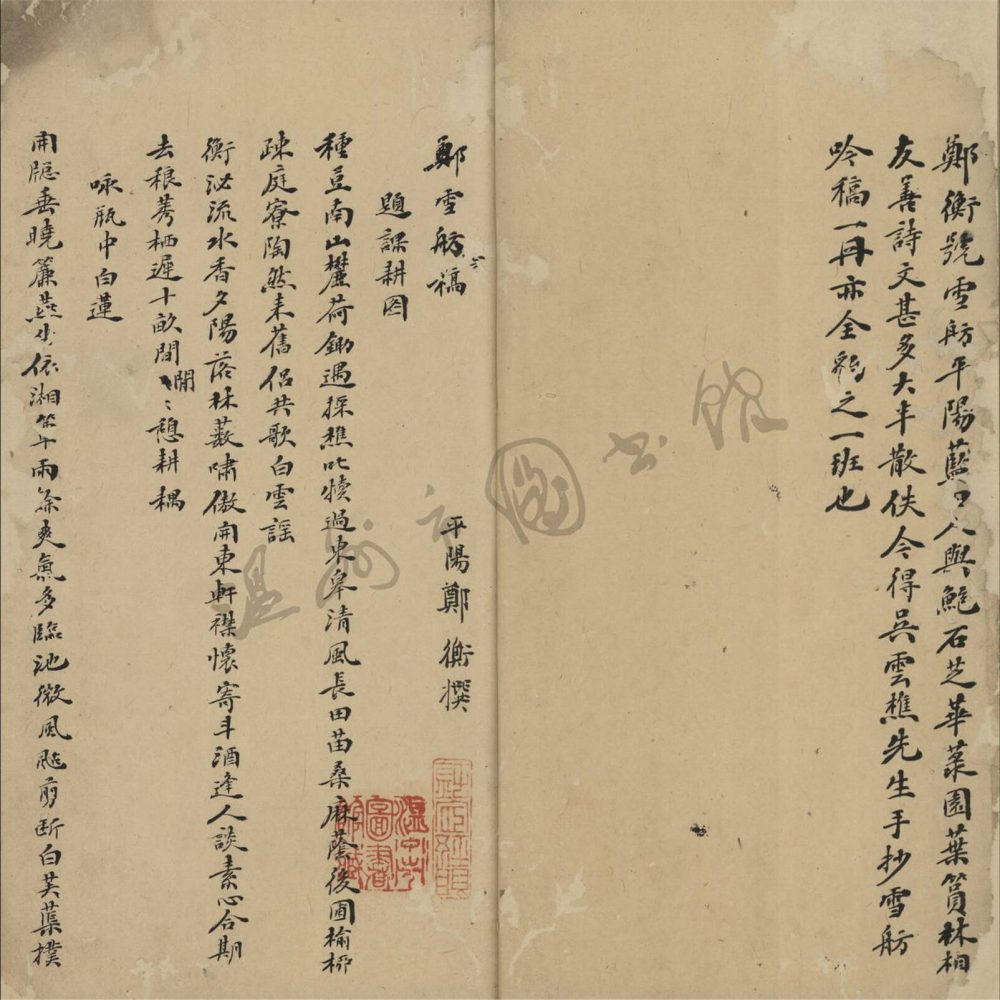 鄭衡號雪舫平陽藍田人與鮑石芝華菉園葉篔林相
友善詩文甚多大半散佚今得吳雲樵先生手抄雪舫
吟稿一冊亦全豹之一班也
鄭雪舫稿
平陽鄭衡撰
題課耕圖
種豆南山麓荷鋤遇採樵叱犢過東皋清風長田苗桑麻蔭後圃榆柳
疎庭寮陶然來舊侶共歌白雲謠
衡泌流水香夕陽落林藪嘯傲開東軒襟懷寄斗酒逢人談素心合期
去稂莠栖遲十畝間閒閒憩耕耦
咏瓶中白蓮
開牕垂曉簾燕坐依湘竹雨餘爽氣多臨池微風颭剪斷白芙蕖撲
溫州市圖書館
溫州市
圖書
館藏